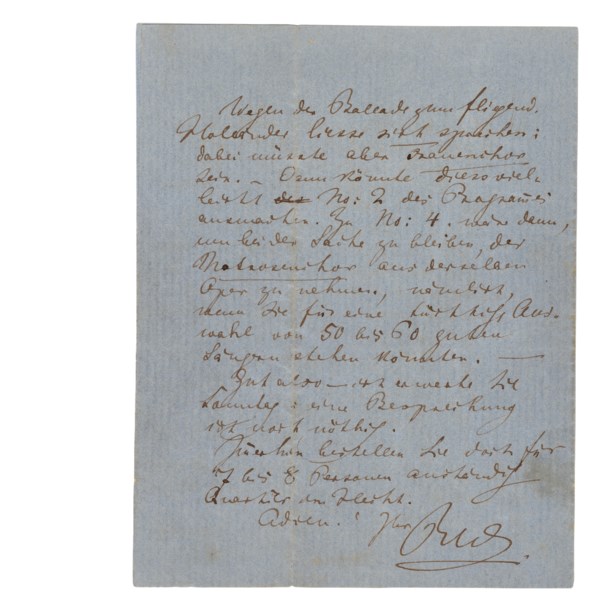 Wegen der Ballade zum fliegend.
Holländer liesse sich sprechen:
dabei müsste aber Frauenchor
sein. – Dann könnte diess viel-
leicht der No: 2 des Programmes
ausmachen. Zu No: 4. wäre dann,
um bei der Sache zu bleiben, der
Matrosenchor aus derselben
Oper zu nehmen, nämlich,
wenn Sie für eine tüchtige Aus-
wahl von 50 bis 60 guten
Sängern stehen könnten. —
Gut also – ich erwarte Sie
Sonntag: eine Besprechung
ist noch nöthig.
bestellen Sie doch für
7 bis 8 Personen anständig
Quartier im Hecht.
Adieu! Ihr